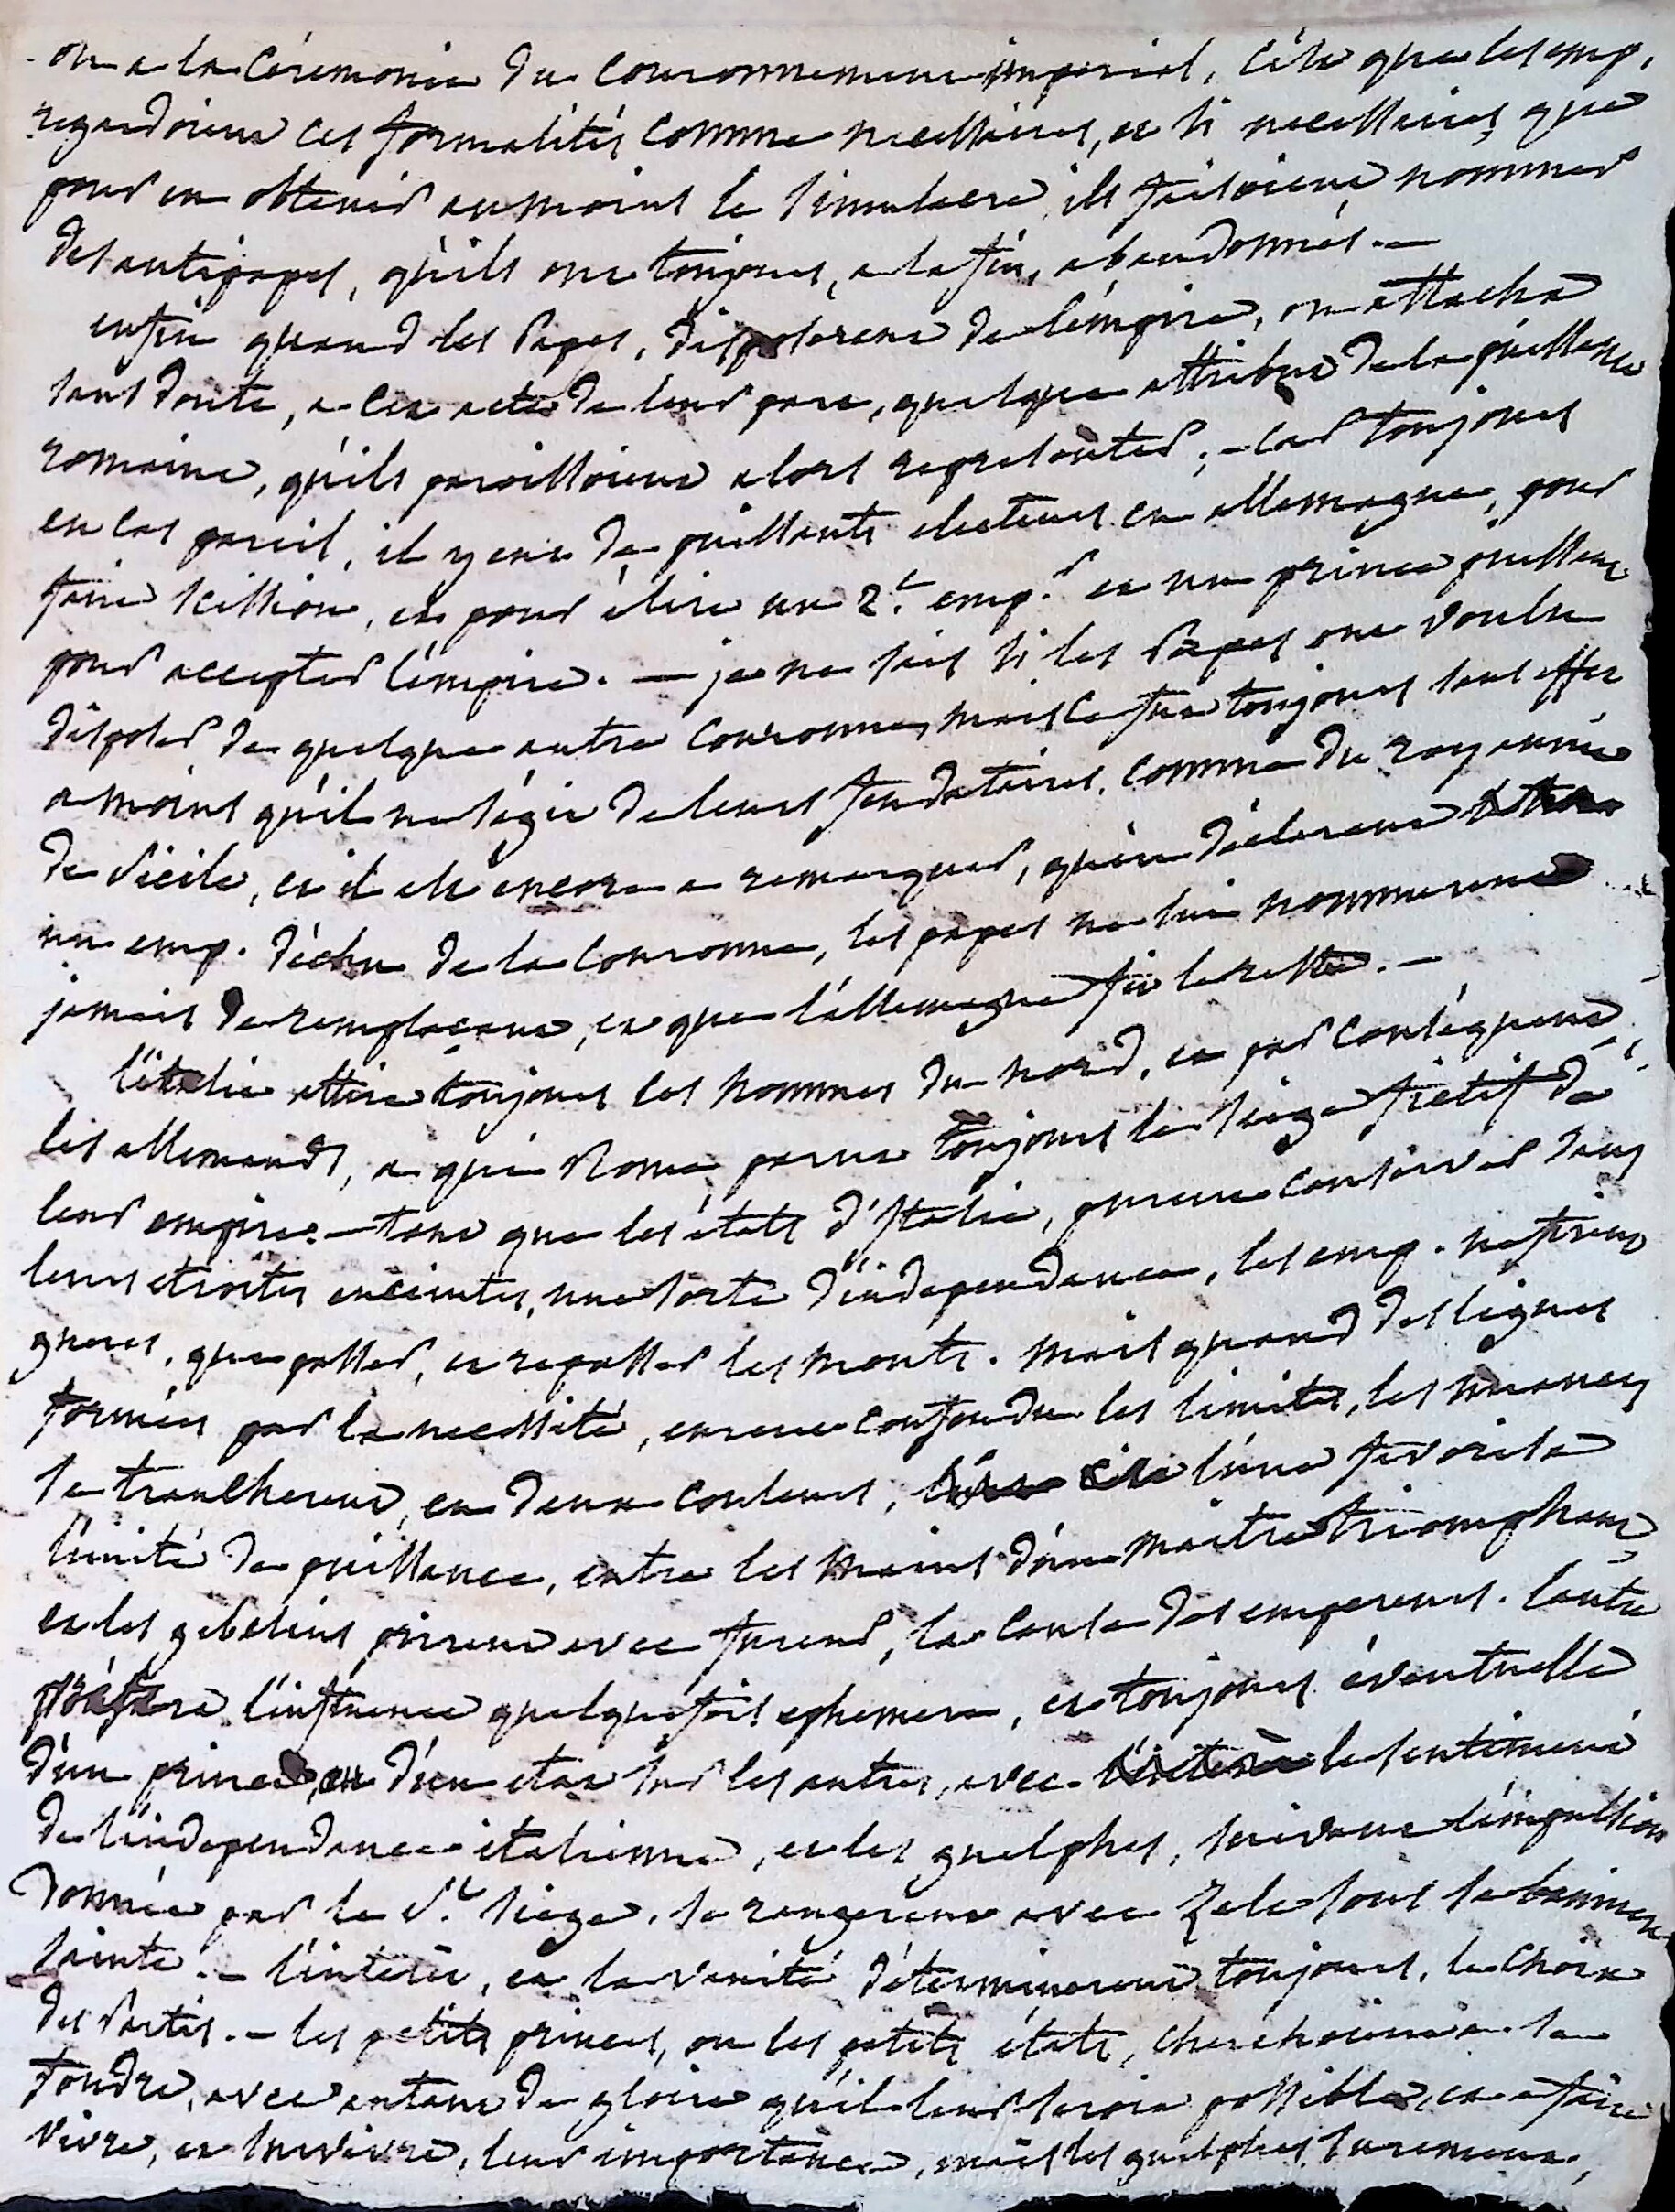 ou a la Ceremonie du Couronnement imperial, c'est que les emp.
regardoient ces formalités comme necessaires, et si necessaires, que
pour en obtenir au moins le simulacre, ils faisoient nommer
des antipapes, qu'ils ont toujours, a la fin, abandonnés. —
enfin quand les Papes, disposerent de l'empire, on attacha
sans doute, a cet acte de leur part, quelque attribut de la puissance
romaine, qu'ils paroissoient alors representer; — car toujours
en cas pareil, il y eut de puissants electeurs en allemagne, pour
faire scission, et pour élire un 2.e emp.r et un prince puissant
pour accepter l'empire. — je ne sais si les Papes ont voulu
disposer de quelque autre Couronne, mais ce fut toujours sans effet
a moins qu'il ne s'agit de leurs feudataires, comme du royaume
de Sicile, et il est encore a remarquer, qu'en déclarant
un emp. déchu de la Couronne, les papes ne lui nommerent
jamais de remplaçant, et que l'allemagne fit le reste. —
l'italie attire toujours les hommes du nord, et par conséquent
les allemands, a qui Rome parut toujours le siege fictif de
leur empire. — tant que les états d'Italie, purent conserver dans
leurs etroites enceintes, une sorte d'independance, les emp. ne firent
gueres, que passer, et repasser les monts. mais quand des ligues
formées par la necessité, eurent confondu les limites, les nuances
se trancherent, en deux couleurs, l'une favorisa
l'unité de puissance, entre les mains d'un maitre triomphant,
et les gibelins prirent avec fureur, la cause des empereurs. l'autre
préfera l'influence quelquefois ephemere, et toujours éventuelle
d'un prince, ou d'un etat sur les autres, avec le sentiment
de l'independance italienne, et les guelphes, suivant l'impulsion
donnée par le St. siege, se rangerent avec zele sous sa banniere
sainte. — l'intérêt, et la vanité déterminerent toujours, le choix
des Partis. — les petits princes, ou les petits états, cherchoient a se
fondre, avec autant de gloire qu'il leur seroit possible, et a faire
vivre, et survivre, leur importance, mais les guelphes surement,